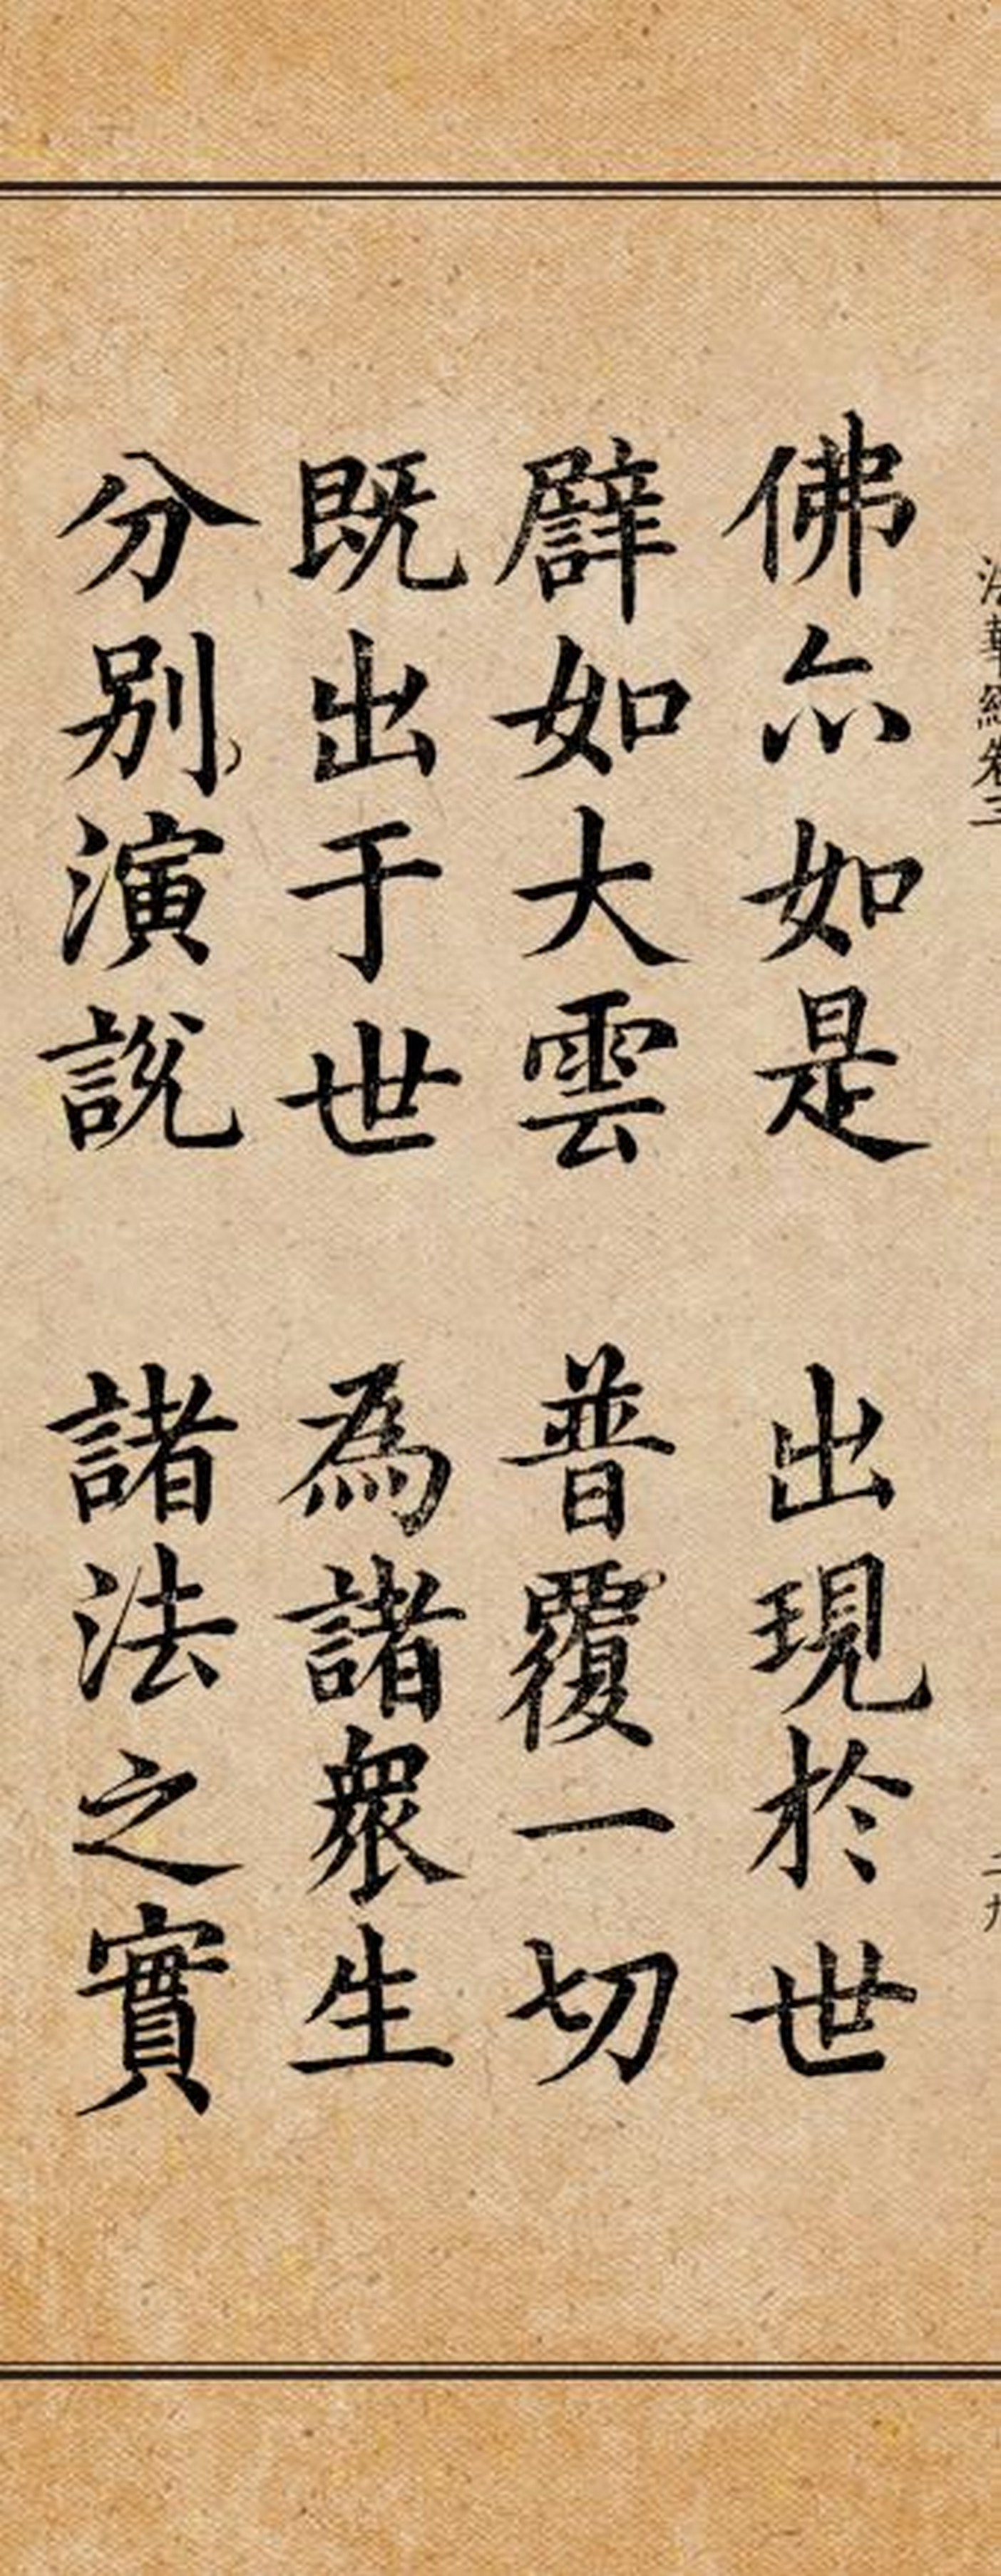 法華經卷三
佛亦如是 出現於世
譬如大雲 普覆一切
既出于世 為諸眾生
分別演說 諸法之實